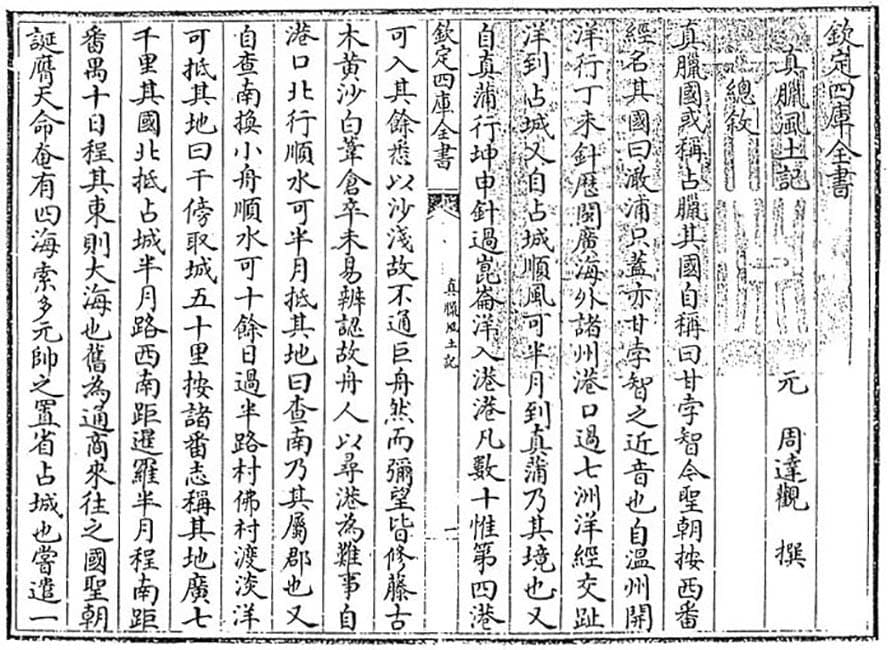 欽定四庫全書
真臘風土記
元 周達觀 撰
總敘
真臘國或稱占臘其國自稱曰甘孛智今聖朝按西番
經名其國曰澉浦只蓋亦甘孛智之近音也自溫州開
洋行丁未針歷閩廣海外諸州港口過七洲洋經交趾
洋到占城又自占城順風可半月到真蒲乃其境也又
自真蒲行坤申針過崑崙洋入港港凡數十惟第四港
欽定四庫全書
真臘風土記
一
可入其餘悉以沙淺故不通巨舟然而彌望皆修藤古
木黄沙白葦倉卒未易辨認故舟人以尋港為難事自
港口北行順水可半月抵其地曰查南乃其屬郡也又
自查南換小舟順水可十餘日過半路村佛村渡淡洋
可抵其地曰干傍取城五十里按諸番志稱其地廣七
千里其國北抵占城半月路西南距暹羅半月程南距
番禺十日程其東則大海也舊為通商來往之國聖朝
誕膺天命奄有四海索多元帥之置省占城也嘗遣一